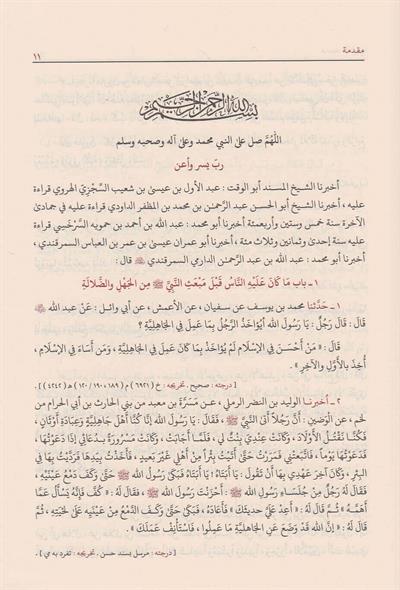 مقدمة ١١
بسم الله الرحمن الرحيم
اللَّهُمَّ صل على النبي محمد وعلى آله وصحبه وسلم
ربّ يسر وأعن
أخبرنا الشيخ المسند أبو الوقت : عبد الأول بن عيسىٰ بن شعيب السِّجْزِي الهروي قراءة
عليه ، أخبرنا الشيخ أبو الحسن عبد الرَّحمٰن بن محمد بن المظفر الداودي قراءة عليه في جمادىٰ
الآخرة سنة خمس وستين وأربعمئة أخبرنا أبو محمد : عبد الله بن أحمد بن حمويه السَّرْخَسِي قراءة
عليه سنة إحدىٰ وثمانين وثلاث مئة ، أخبرنا أبو عمران عيسىٰ بن عمر بن العباس السمرقندي ،
أخبرنا أبو محمد : عبد الله بن عبد الرحمٰن الدارمي السمرقندي ﷺ قال :
١ ـ باب مَا كَانَ عَلَيْهِ النَّاسُ قَبْلَ مَبْعَثِ النَّبِيِّ ﷺ مِنَ الْجَهْلِ وَالضَّلَالَةِ
١ ـ حَدَّثَنَا محمد بن يوسف عن سفيان ، عن الأعمش ، عن أبي وائل : عَنْ عَبد الله
قَالَ : قَالَ رَجُلٌ : يَا رَسُولَ اللهِ أَيُؤَاخَذُ الرَّجُلُ بِمَا عَمِلَ فِي الْجَاهِلِيَّةِ ؟
قَالَ : « مَنْ أَحْسَنَ فِي الإِسْلَامِ لَمْ يُؤَاخَذْ بِمَا كَانَ عَمِلَ فِي الْجَاهِلِيَّةِ ، وَمَن أَسَاءَ فِي الإِسْلَامِ ،
أُخِذَ بِالأَوَّلِ وَالآخِرِ » .
[ درجته : صحيح . تخريجه : خ ( ٦٩٢١ ) م ( ١٨٩ ، ١٩٠ ، ١٢٠ ) ق ( ٤٢٤٢ ) ] .
٢ ـ أخبرنا الوليد بن النضر الرملي ، عن مَسَرَّةَ بن معبد من بني الحارث بن أبي الحرام من
لخم ، عَنِ الْوَضِينِ : أَنَّ رَجُلاً أَتَىٰ النَّبِيَّ ﷺ ، فَقَالَ : يَا رَسُولَ اللهِ إِنَّا كُنَّا أَهْلَ جَاهِلِيَّةٍ وَعِبَادَةِ أَوْثَانٍ ،
فَكُنَّا نَقْتُلُ الأَوْلَادَ ، وَكَانَتْ عِنْدِي بِنْتٌ لِي ، فَلَمَّا أَجَابَتْ ، وَكَانَتْ مَسْرُورَةً بِدُعَائِي إِذَا دَعَوْتُهَا ،
فَدَعَوْتُهَا يَوْماً ، فَاتَّبَعَتْنِي فَمَرَرْتُ حَتَّىٰ أَتَيْتُ بِئْراً مِنْ أَهْلِي غَيْرَ بَعِيدٍ ، فَأَخَذْتُ بِيَدِهَا فَرَدَّيْتُ بِهَا فِي
البِئْرِ ، وَكَانَ آخِرَ عَهْدِي بِهَا أَنْ تَقُولَ : يَا أَبَتَاهُ ! يَا أَبَتَاهُ فَبَكَىٰ رَسُولُ اللهِ ﷺ حَتَّىٰ وَكَفَ دَمْعُ عَيْنَيْهِ ،
فَقَالَ لَهُ رَجُلٌ مِنْ جُلَسَاءِ رَسُولِ اللهِ ﷺ : أَحْزَنْتَ رَسُولَ اللهِ ﷺ ، فَقَالَ لَهُ : « كُفَّ فَإِنَّهُ يَسْأَلُ عَمَّا
أَهَمَّهُ » ثُمَّ قَالَ لَهُ : « أَعِدْ عَلَيَّ حَدِيثَكَ » فَأَعَادَهُ ، فَبَكَىٰ حَتَّىٰ وَكَفَ الدَّمْعُ مِنْ عَيْنَيْهِ عَلَىٰ لِحْيَتِهِ ، ثُمَّ
قَالَ لَهُ : « إِنَّ اللهَ قَدْ وَضَعَ عَنِ الْجَاهِلِيَّةِ مَا عَمِلُوا ، فَاسْتَأْنِفْ عَمَلَكَ » .
[ درجته : مرسل بسند حسن . تخريجه : تفرد به مي ] .